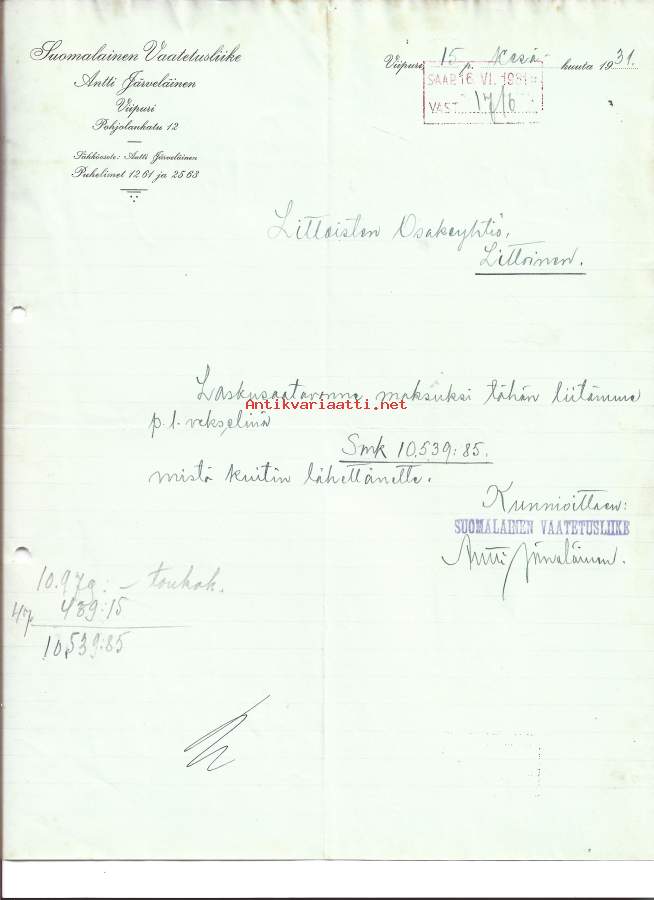 Suomalainen Vaatetusliike
Antti Järveläinen
Viipuri
Pohjolankatu 12
Sähköosote: Antti Järveläinen
Puhelimet 12 61 ja 25 63
Viipuri, 15 p. Kesä kuuta 1931.
SAAP. 16 VI. 1931
VAST. 17/6
Littoisten Osakeyhtiö,
Littoinen.
Laskusaatavanne maksuksi tähän liitämme
Antikvariaatti.net
p. t. vekselinä
Smk 10.539:85.
mistä kuitin lähettänette.
Kunnioittaen:
SUOMALAINEN VAATETUSLIIKE
Antti Järveläinen.
10.979:- toukok.
4% 439:15
10,539:85